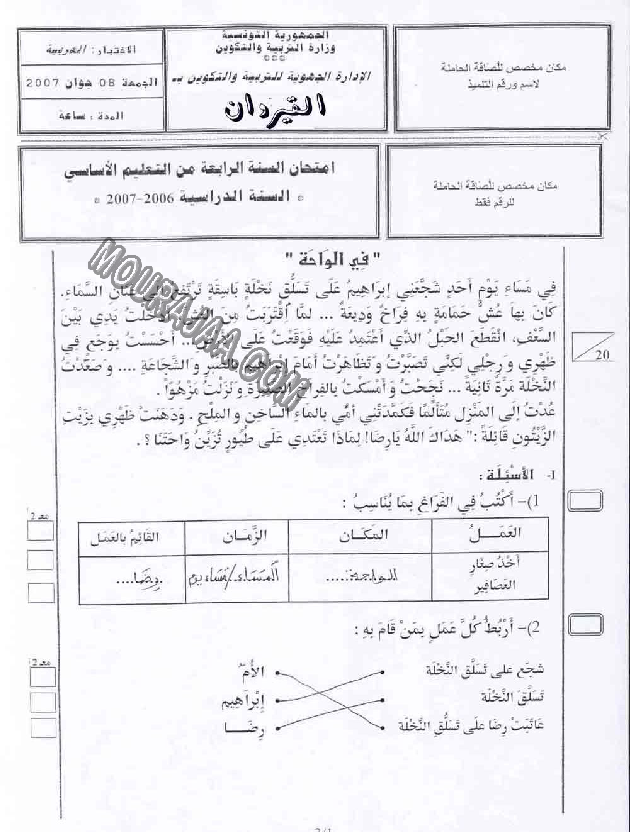 الجمهورية التونسية
وزارة التربية والتكوين
***
الإدارة الجهوية للتربية والتكوين بـ
القيروان
الاختبار: العربية
الجمعة 08 جوان 2007
المدة: ساعة
مكان مخصص للصاقة الحاملة
لاسم ورقم التلميذ
امتحان السنة الرابعة من التعليم الأساسي
* السنة الدراسية 2006-2007 *
مكان مخصص للصاقة الحاملة
للرقم فقط
" في الوَاحَة "
فِي مَسَاءِ يَوْمِ أَحَدٍ شَجَّعَنِي إِبْرَاهِيمُ عَلَى تَسَلُّقِ نَخْلَةٍ بَاسِقَةٍ تَرْتَفِعُ عَنَانَ السَّمَاءِ.
كَانَ بِهَا عُشُّ حَمَامَةٍ بِهِ فِرَاخٌ وَدِيعَةٌ ... لَمَّا اقْتَرَبْتُ مِنَ العُشِّ أَدْخَلْتُ يَدِي بَيْنَ
السَّعَفِ، انْقَطَعَ الحَبْلُ الذِي أَعْتَمِدُ عَلَيْهِ فَوَقَعْتُ عَلَى أَحْسَسْتُ بِوَجَعٍ فِي
ظَهْرِي وَ رِجْلِي لَكِنِّي تَصَبَّرْتُ وَ تَظَاهَرْتُ أَمَامَ إِبْرَاهِيمَ بِالصَّبْرِ وَ الشَّجَاعَةِ .... وَ صَعَّدْتُ
النَّخْلَةَ مَرَّةً ثَانِيَةً ... نَجَحْتُ وَ أَمْسَكْتُ بِالفِرَاخِ الصَّغِيرَةِ وَ نَزَلْتُ مَزْهُوًّا .
عُدْتُ إِلَى المَنْزِلِ مُتَأَلِّمًا فَكَمَّدَتْنِي أُمِّي بِالمَاءِ السَّاخِنِ وَ المِلْحِ . وَدَهَنَتْ ظَهْرِي بِزَيْتِ
الزَّيْتُونِ قَائِلَةً : " هَدَاكَ اللَّهُ يَا رِضَا! لِمَاذَا تَعْتَدِي عَلَى طُيُورٍ تُزَيِّنُ وَاحَتَنَا ؟ .
20
I- الأَسْئِلَة :
1)- أَكْتُبُ فِي الفَرَاغِ بِمَا يُنَاسِبُ :
مع 2
العَمَـلُ
المَكَـان
الزَّمَـان
القَائِمُ بِالعَمَل
أَخْذُ صِغَارِ
العَصَافِيرِ
الواحة.....
المساء/مساء يوم
رضا....
2)- أَرْبِطُ كُلَّ عَمَلٍ بِمَنْ قَامَ بِهِ :
مع 2
شجع على تَسَلُّقِ النَّخْلَة
الأُمّ
تَسَلَّقَ النَّخْلَة
إِبْرَاهِيم
عَاتَبَتْ رِضَا عَلَى تَسَلُّقِ النَّخْلَة
رِضَـا
MOURAJAA.COM